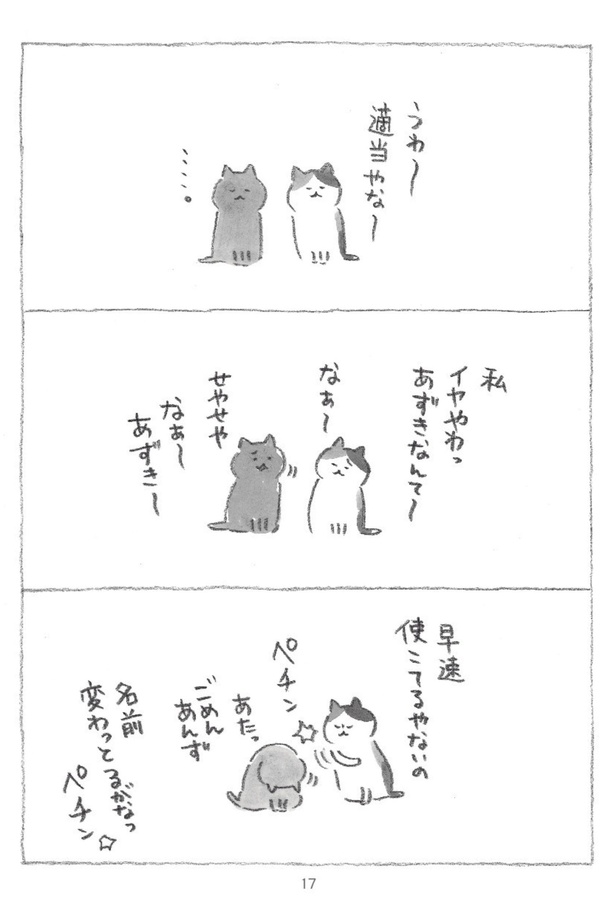 うわ〜
適当やな〜
・・・・。
私
イヤやわっ
あずきなんて〜
なぁ〜
せやせや
なぁ〜
あずき〜
早速
使こてるやないの
ペチン
あたっ
ごめん
あんず
名前
変わっとるがなっ
ペチン
17